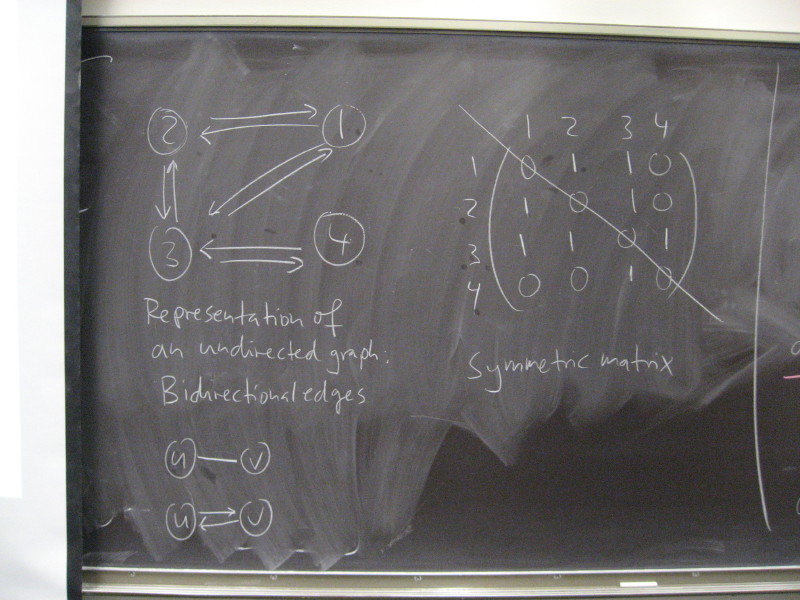 2 1
3 4
Representation of
an undirected graph:
Bidirectional edges
u v
u v
1 2 3 4
1 0 1 1 0
2 1 0 1 0
3 1 1 0 1
4 0 0 1 0
Symmetric matrix